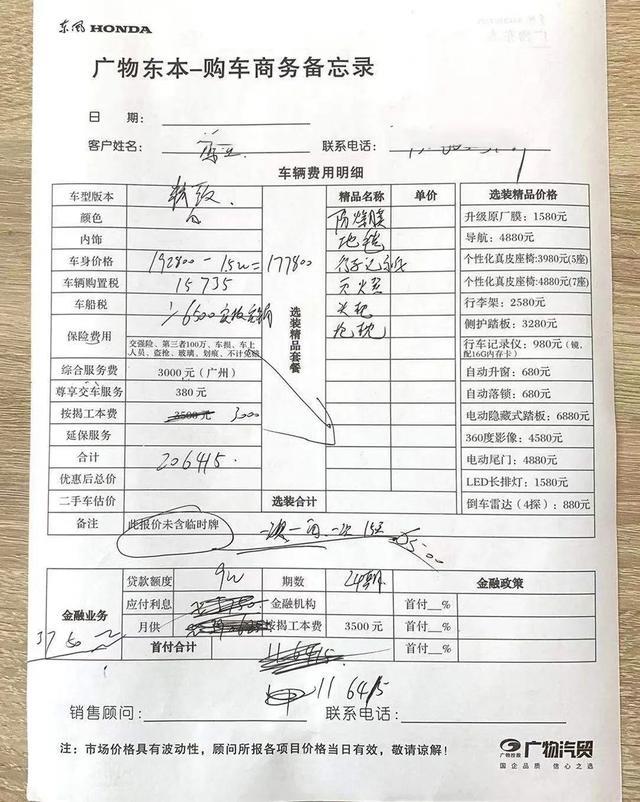 东风 HONDA
广物东本-购车商务备忘录
日 期：
客户姓名： 联系电话：
车辆费用明细
车型版本 精致 精品名称 单价 选装精品价格
颜色 白 防爆膜 升级原厂膜：1580元
内饰 地毯 导航：4880元
车身价格 192800-1.5w=177800 行车记录仪 个性化真皮座椅:3980元(5座)
车辆购置税 15735 灭火器 个性化真皮座椅:4880元(7座)
车船税 头枕 行李架：2580元
6500 抱枕 侧护踏板：3280元
保险费用 交强险、第三者100万、车损、车上人员、盗抢、玻璃、划痕、不计免赔 行车记录仪：980元（镜，配16G内存卡）
选装精品套餐
综合服务费 3000元（广州） 自动升窗：680元
尊享交车服务 380元 自动落锁：680元
按揭工本费 3500元 3000 电动隐藏式踏板：6880元
延保服务 360度影像：4580元
合计 206415. 电动尾门：4880元
优惠后总价 LED长排灯：1580元
二手车估价 选装合计 倒车雷达（4探）：880元
备注 此报价未含临时牌
贷款额度 9w 期数 24期 金融政策
金融业务 应付利息 金融机构 首付__%
月供 按揭工本费 3500元 首付__%
3750
首付合计 116415 首付__%
116415
销售顾问： 联系电话：
注：市场价格具有波动性，顾问所报各项目价格当日有效，敬请谅解！
广物控股 广物汽贸
国企品质 信心之选